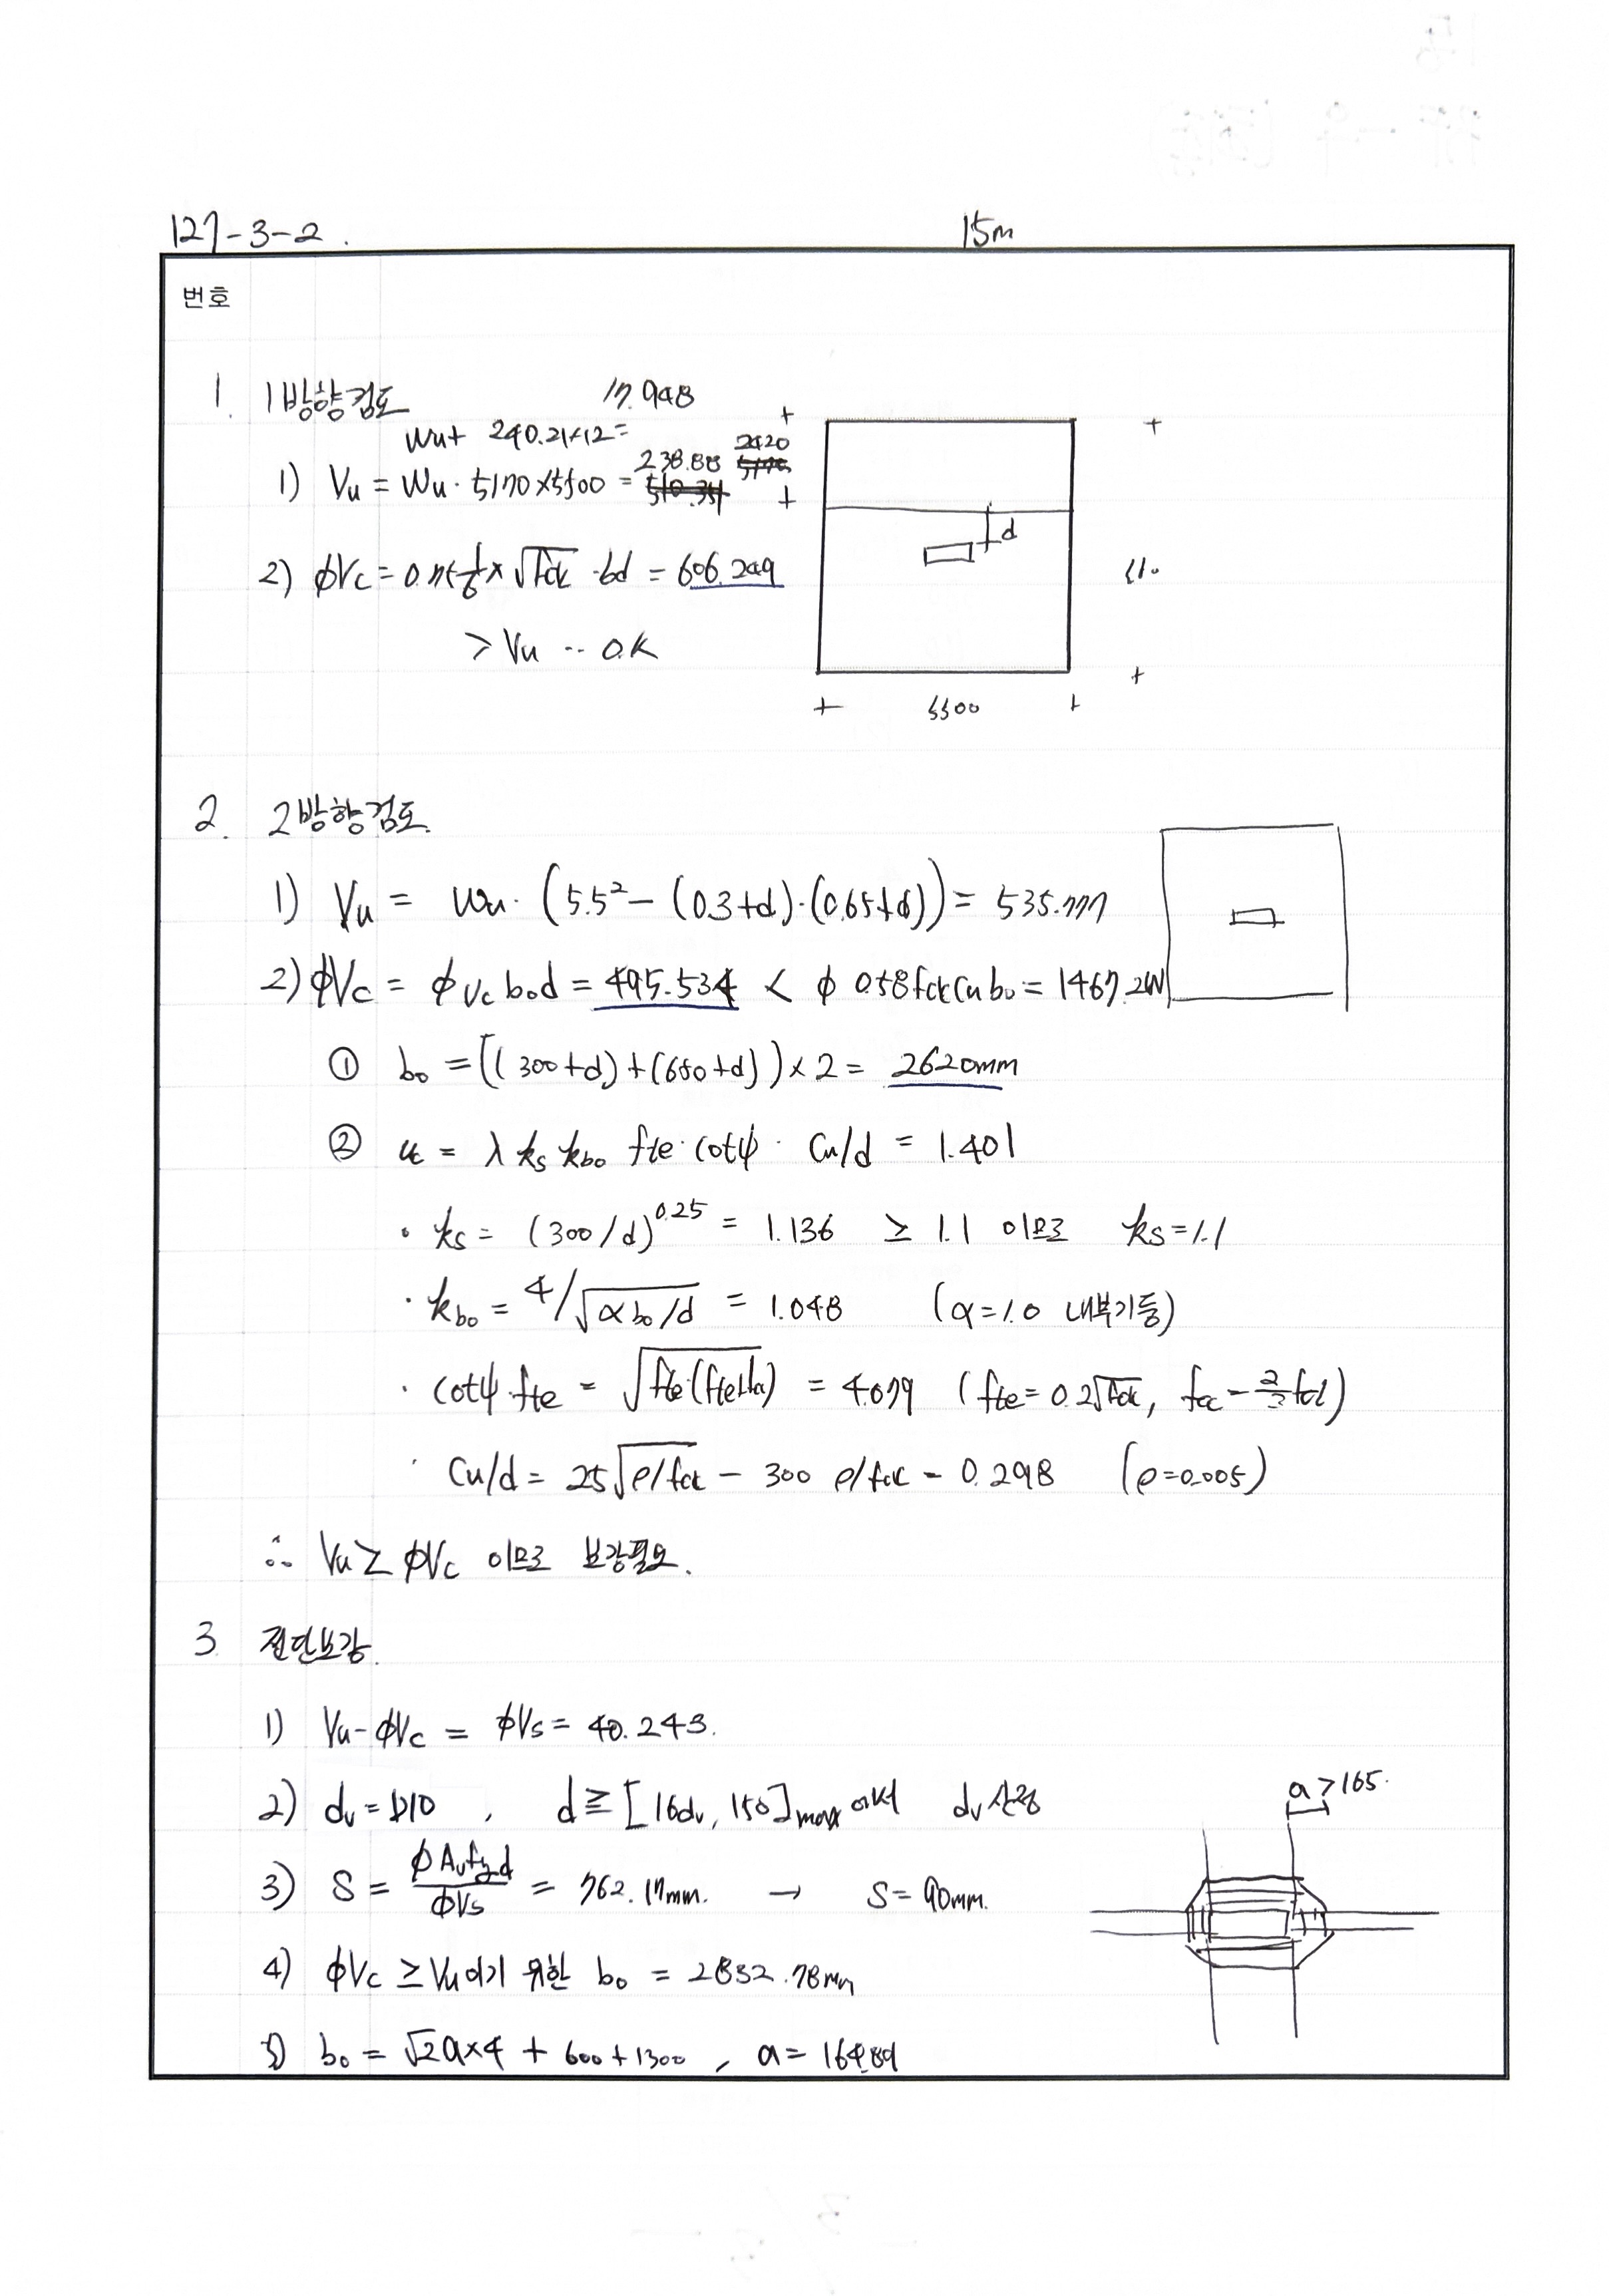 127-3-2.
15m
번호
1. 1방향검토
17.948
Wu+ 240.21×1.2=
2420
238.88
1) Vu = Wu · 5170×5500 =
d
2) φVc = 0.75 1/6 × √fck · bd = 606.249
> Vu -- O.K
5500
2. 2방향검토.
1) Vu = Wu · (5.5² - (0.3+d)·(0.65+d)) = 535.777
2) φVc = φ vc bod = 495.534 < φ 0.58fck Cu bo = 1467.2kN
① bo = ((300+d)+(650+d))×2 = 2620mm
② vc = λ ks kbo fte·cotψ · Cu/d = 1.401
· ks = (300/d)^0.25 = 1.136 ≥ 1.1 이므로 ks=1.1
· kbo = 4/√(αbo/d) = 1.048 (α=1.0 내부기둥)
· cotψ·fte = √(fte(fte+fcc)) = 4.079 (fte=0.2√fck, fcc = 2/3 fck)
· Cu/d = 25√(ρ/fck) - 300 ρ/fck = 0.298 (ρ=0.005)
∴ Vu ≥ φVc 이므로 보강필요.
3 전단보강.
1) Vu-φVc = φVs = 40.243.
2) dv = D10 , d ≧ [16dv, 150]max 에서 dv 산정
a>165.
3) S = φAvfyd/φVs = 762.17mm. → S= 90mm.
4) φVc ≥ Vu이기 위한 bo = 2832.78mm
5) bo = √2a×4 + 600+1300 , a= 164.89